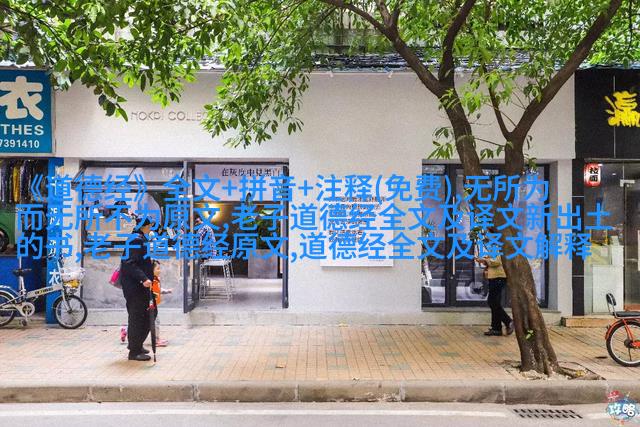 衣
THES
NOKDI COLLEC
在灰度中見黑白
瀛
《道德经》全文+拼音+注释(免费),无所为
而无所不为原文,老子道德经全文及译文新出土
的,老子道德经原文,道德经全文及译文解释
攻略